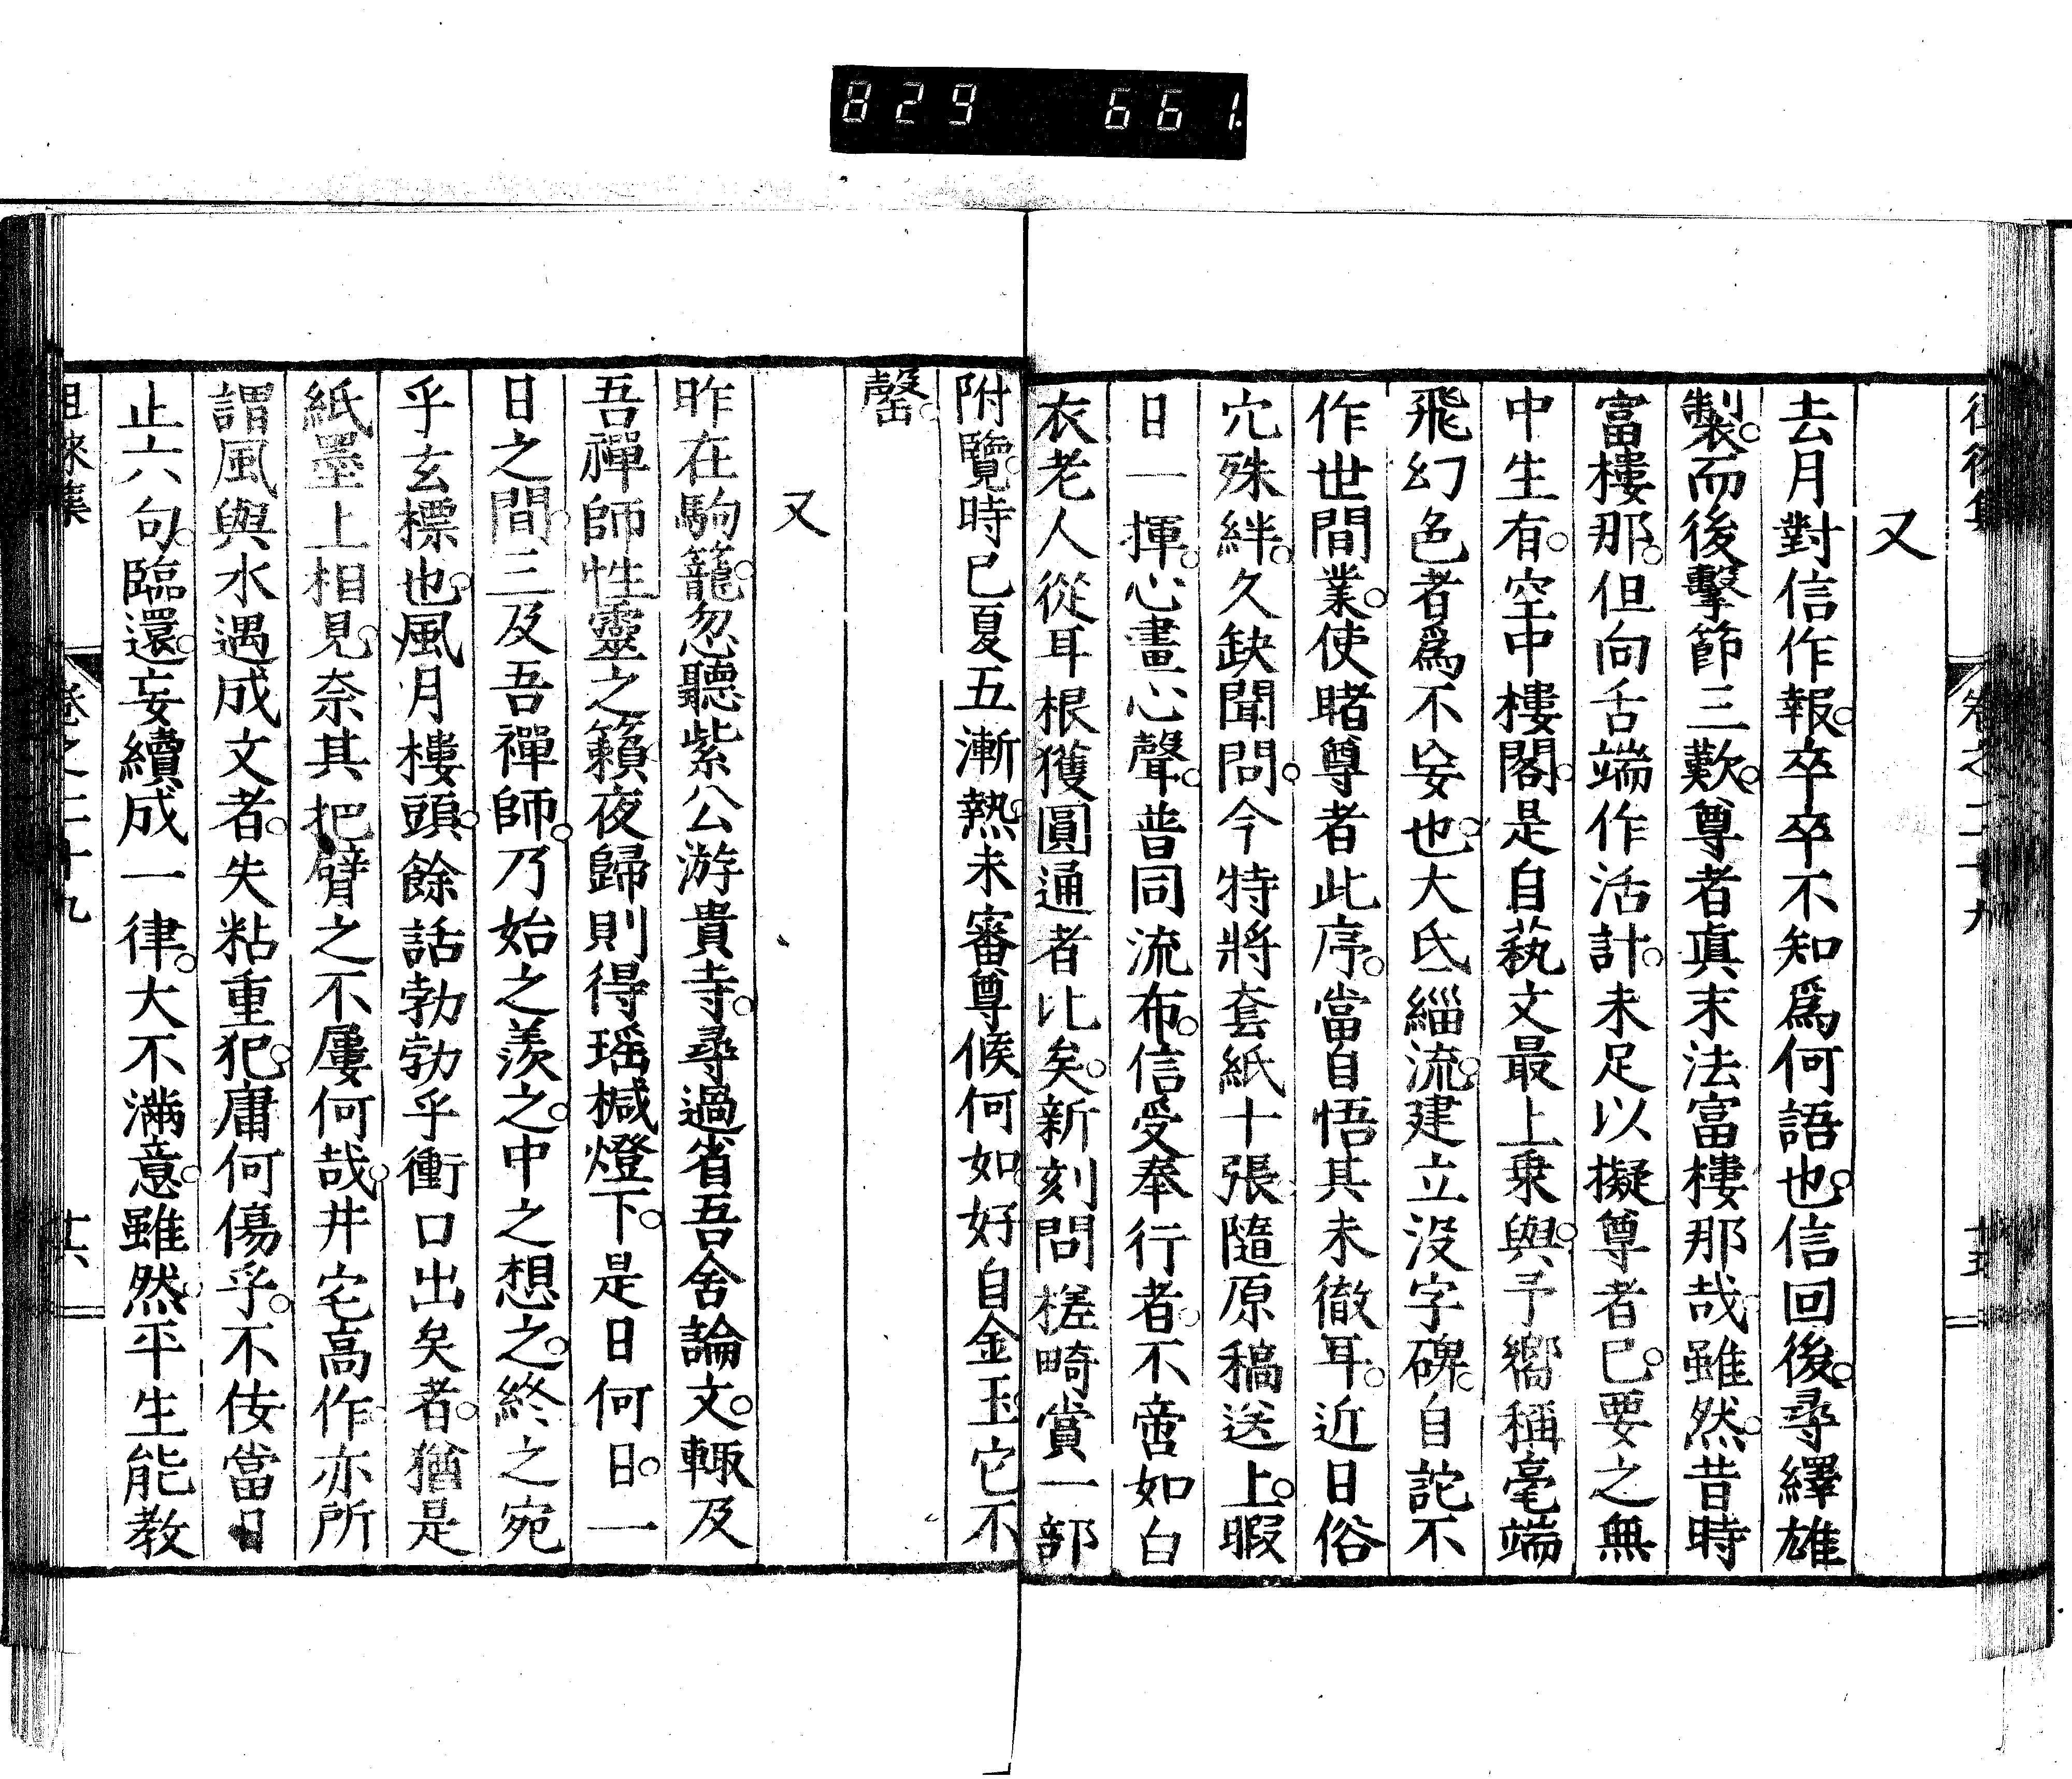 829 661.
又
去月對信作報。卒卒不知爲何語也。信回後。尋繹雄
製。而後擊節三歎。尊者眞末法富樓那哉。雖然。昔時
富樓那。但向舌端作活計。未足以擬尊者已。要之無
中生有。空中樓閣。是自蓺文最上乘。與予嚮稱毫端
飛幻色者爲不妄也。大氐緇流。建立沒字碑。自詑不
作世間業。使睹尊者此序。當自悟其未徹耳。近日俗
冗殊絆。久缺聞問。今特將套紙十張隨原稿送上。暇
日一揮。心畫心聲。普同流布。信受奉行者。不啻如白
衣老人從耳根獲圓通者比矣。新刻問槎畸賞一部
附覽。時已夏五漸熱。未審尊候何如。好自金玉。它不
罄。
又
昨在駒籠。忽聽紫公游貴寺。尋過省吾舍論文。輒及
吾禪師性靈之籟。夜歸則得瑶椷燈下。是日何日。一
日之間。三及吾禪師。乃始之羨之。中之想之。終之宛
乎玄標也。風月樓頭。餘話勃勃乎衝口出矣者。猶是
紙墨上相見。奈其把臂之不屢何哉。井宅高作。亦所
謂風與水遇成文者。失粘重犯。庸何傷乎。不佞當日
止六句。臨還。妄續成一律。大不滿意。雖然。平生能教
徂徠集 卷之二十九 十六